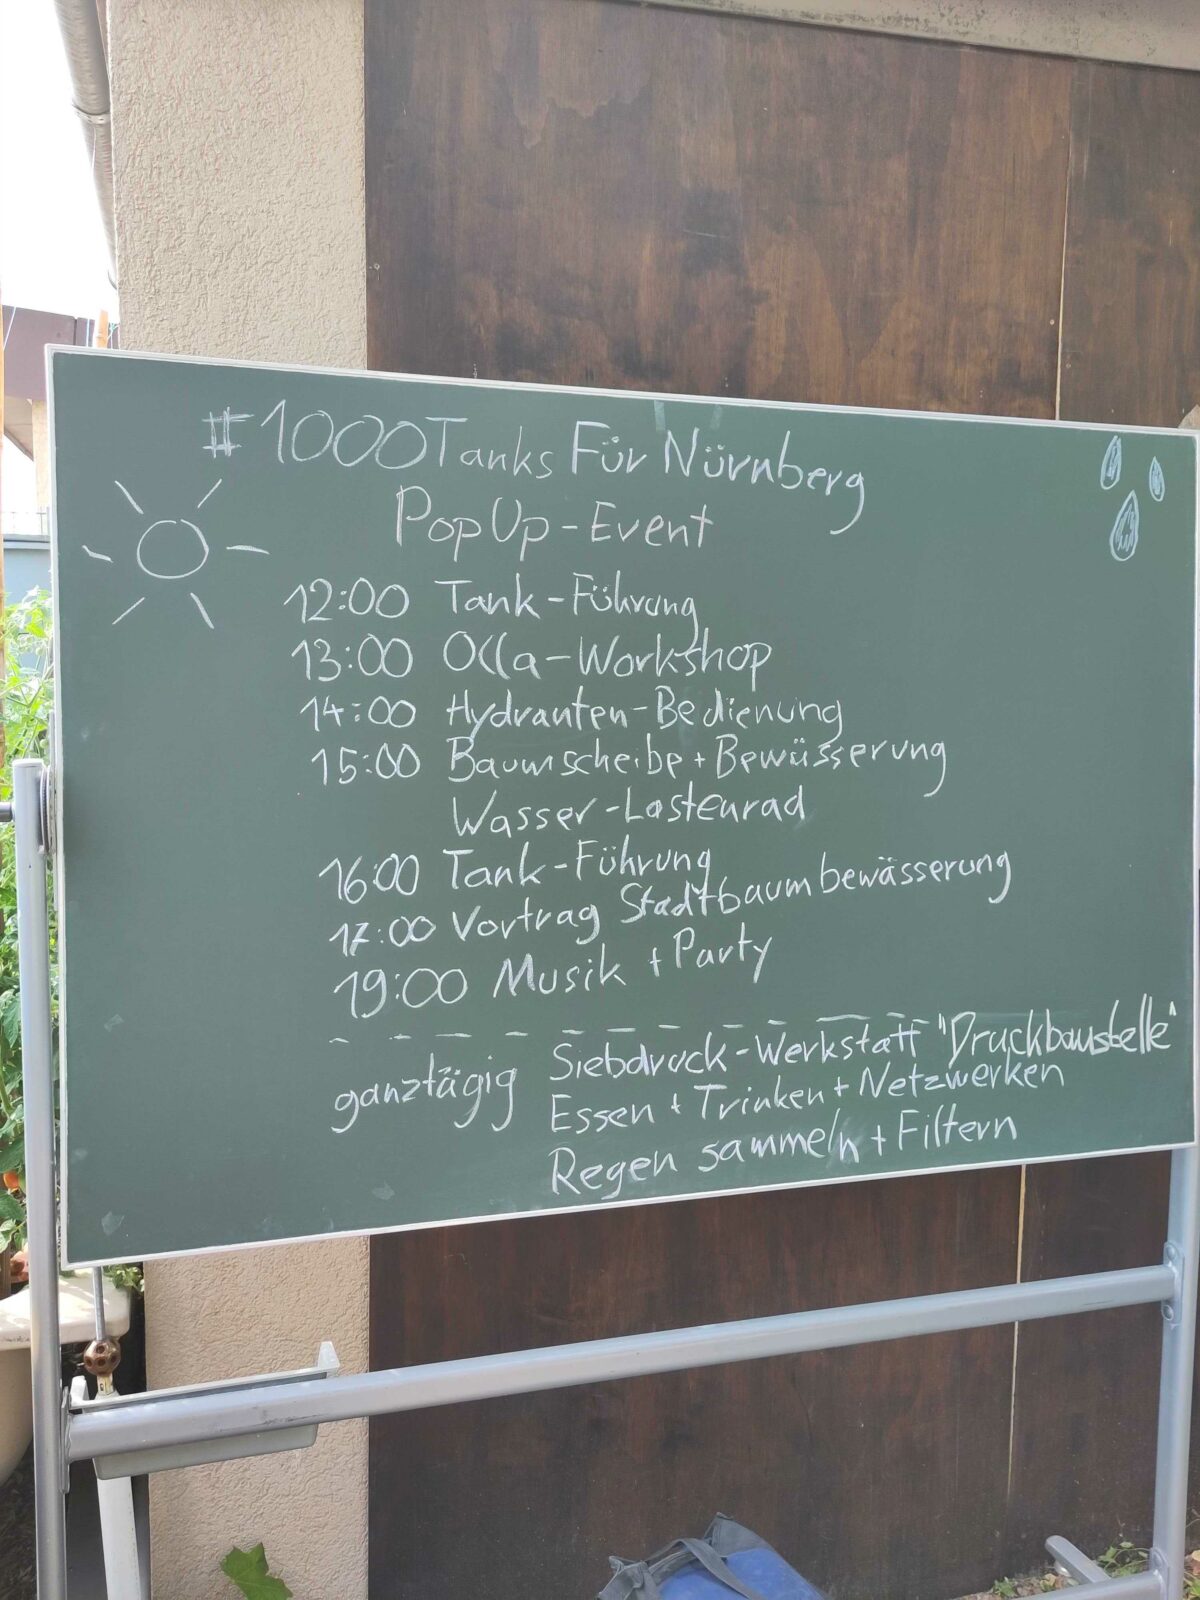 #1000Tanks Für Nürnberg
PopUp-Event
12:00 Tank-Führung
13:00 Olla-Workshop
14:00 Hydranten-Bedienung
15:00 Baumscheibe + Bewüsserung
Wasser-Lastenrad
16:00 Tank-Führung
17:00 Vortrag Stadtbaumbewässerung
19:00 Musik + Party
ganztägig Siebdruck-Werkstatt "Druckbaustelle"
Essen + Trinken + Netzwerken
Regen sammeln + Filtern